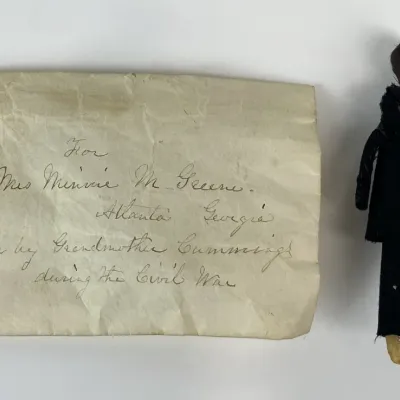 For
Mrs Minnie M Greene.
Atlanta Georgia
by Grandmother Cummings
during the Civil War